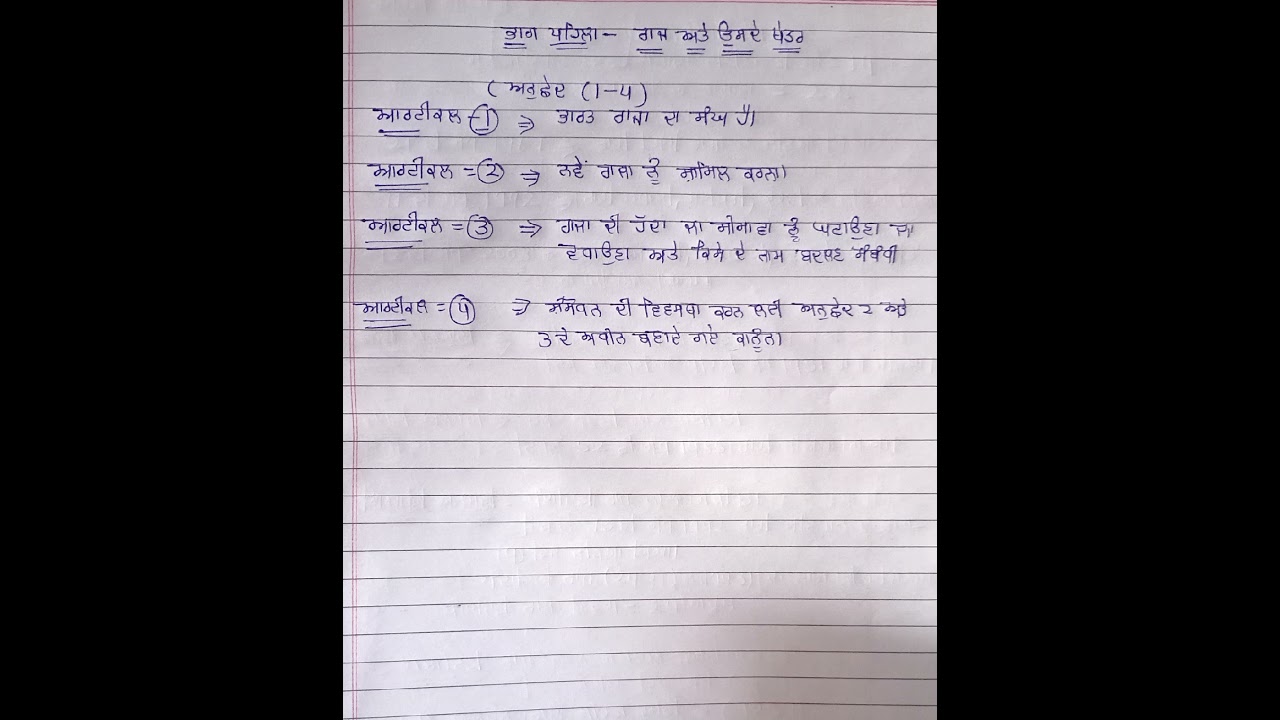 ਭਾਗ ਪਹਿਲਾ - ਰਾਜ ਅਤੇ ਉਸਦੇ ਖੇਤਰ
(ਅਨੁਛੇਦ (1-4)
ਆਰਟੀਕਲ -1 ⇒ ਭਾਰਤ ਰਾਜਾ ਦਾ ਸੰਘ ਹੈ।
ਆਰਟੀਕਲ = 2 ⇒ ਨਵੇਂ ਰਾਜਾ ਨੂੰ ਸ਼ਾਮਿਲ ਕਰਨਾ।
ਆਰਟੀਕਲ = 3 ⇒ ਰਾਜਾ ਦੀ ਹੱਦਾ ਜਾ ਸੀਮਾਵਾ ਨੂੰ ਘਟਾਉਣਾ ਜਾ
ਵਧਾਉਣਾ ਅਤੇ ਕਿਸੇ ਦੇ ਨਾਮ ਬਦਲਣ ਸੰਬੰਧੀ
ਆਰਟੀਕਲ = 4 ⇒ ਸੰਸੋਧਨ ਦੀ ਵਿਵਸਥਾ ਕਰਨ ਲਈ ਅਨੁਛੇਦ 2 ਅਤੇ
3 ਦੇ ਅਧੀਨ ਬਣਾਏ ਗਏ ਕਾਨੂੰਨ।